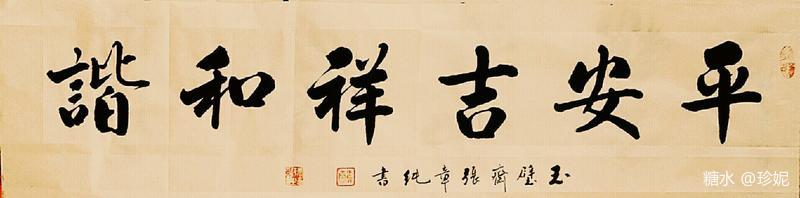 平安吉祥和諧
玉壁齋張章純書
糖水 @珍妮